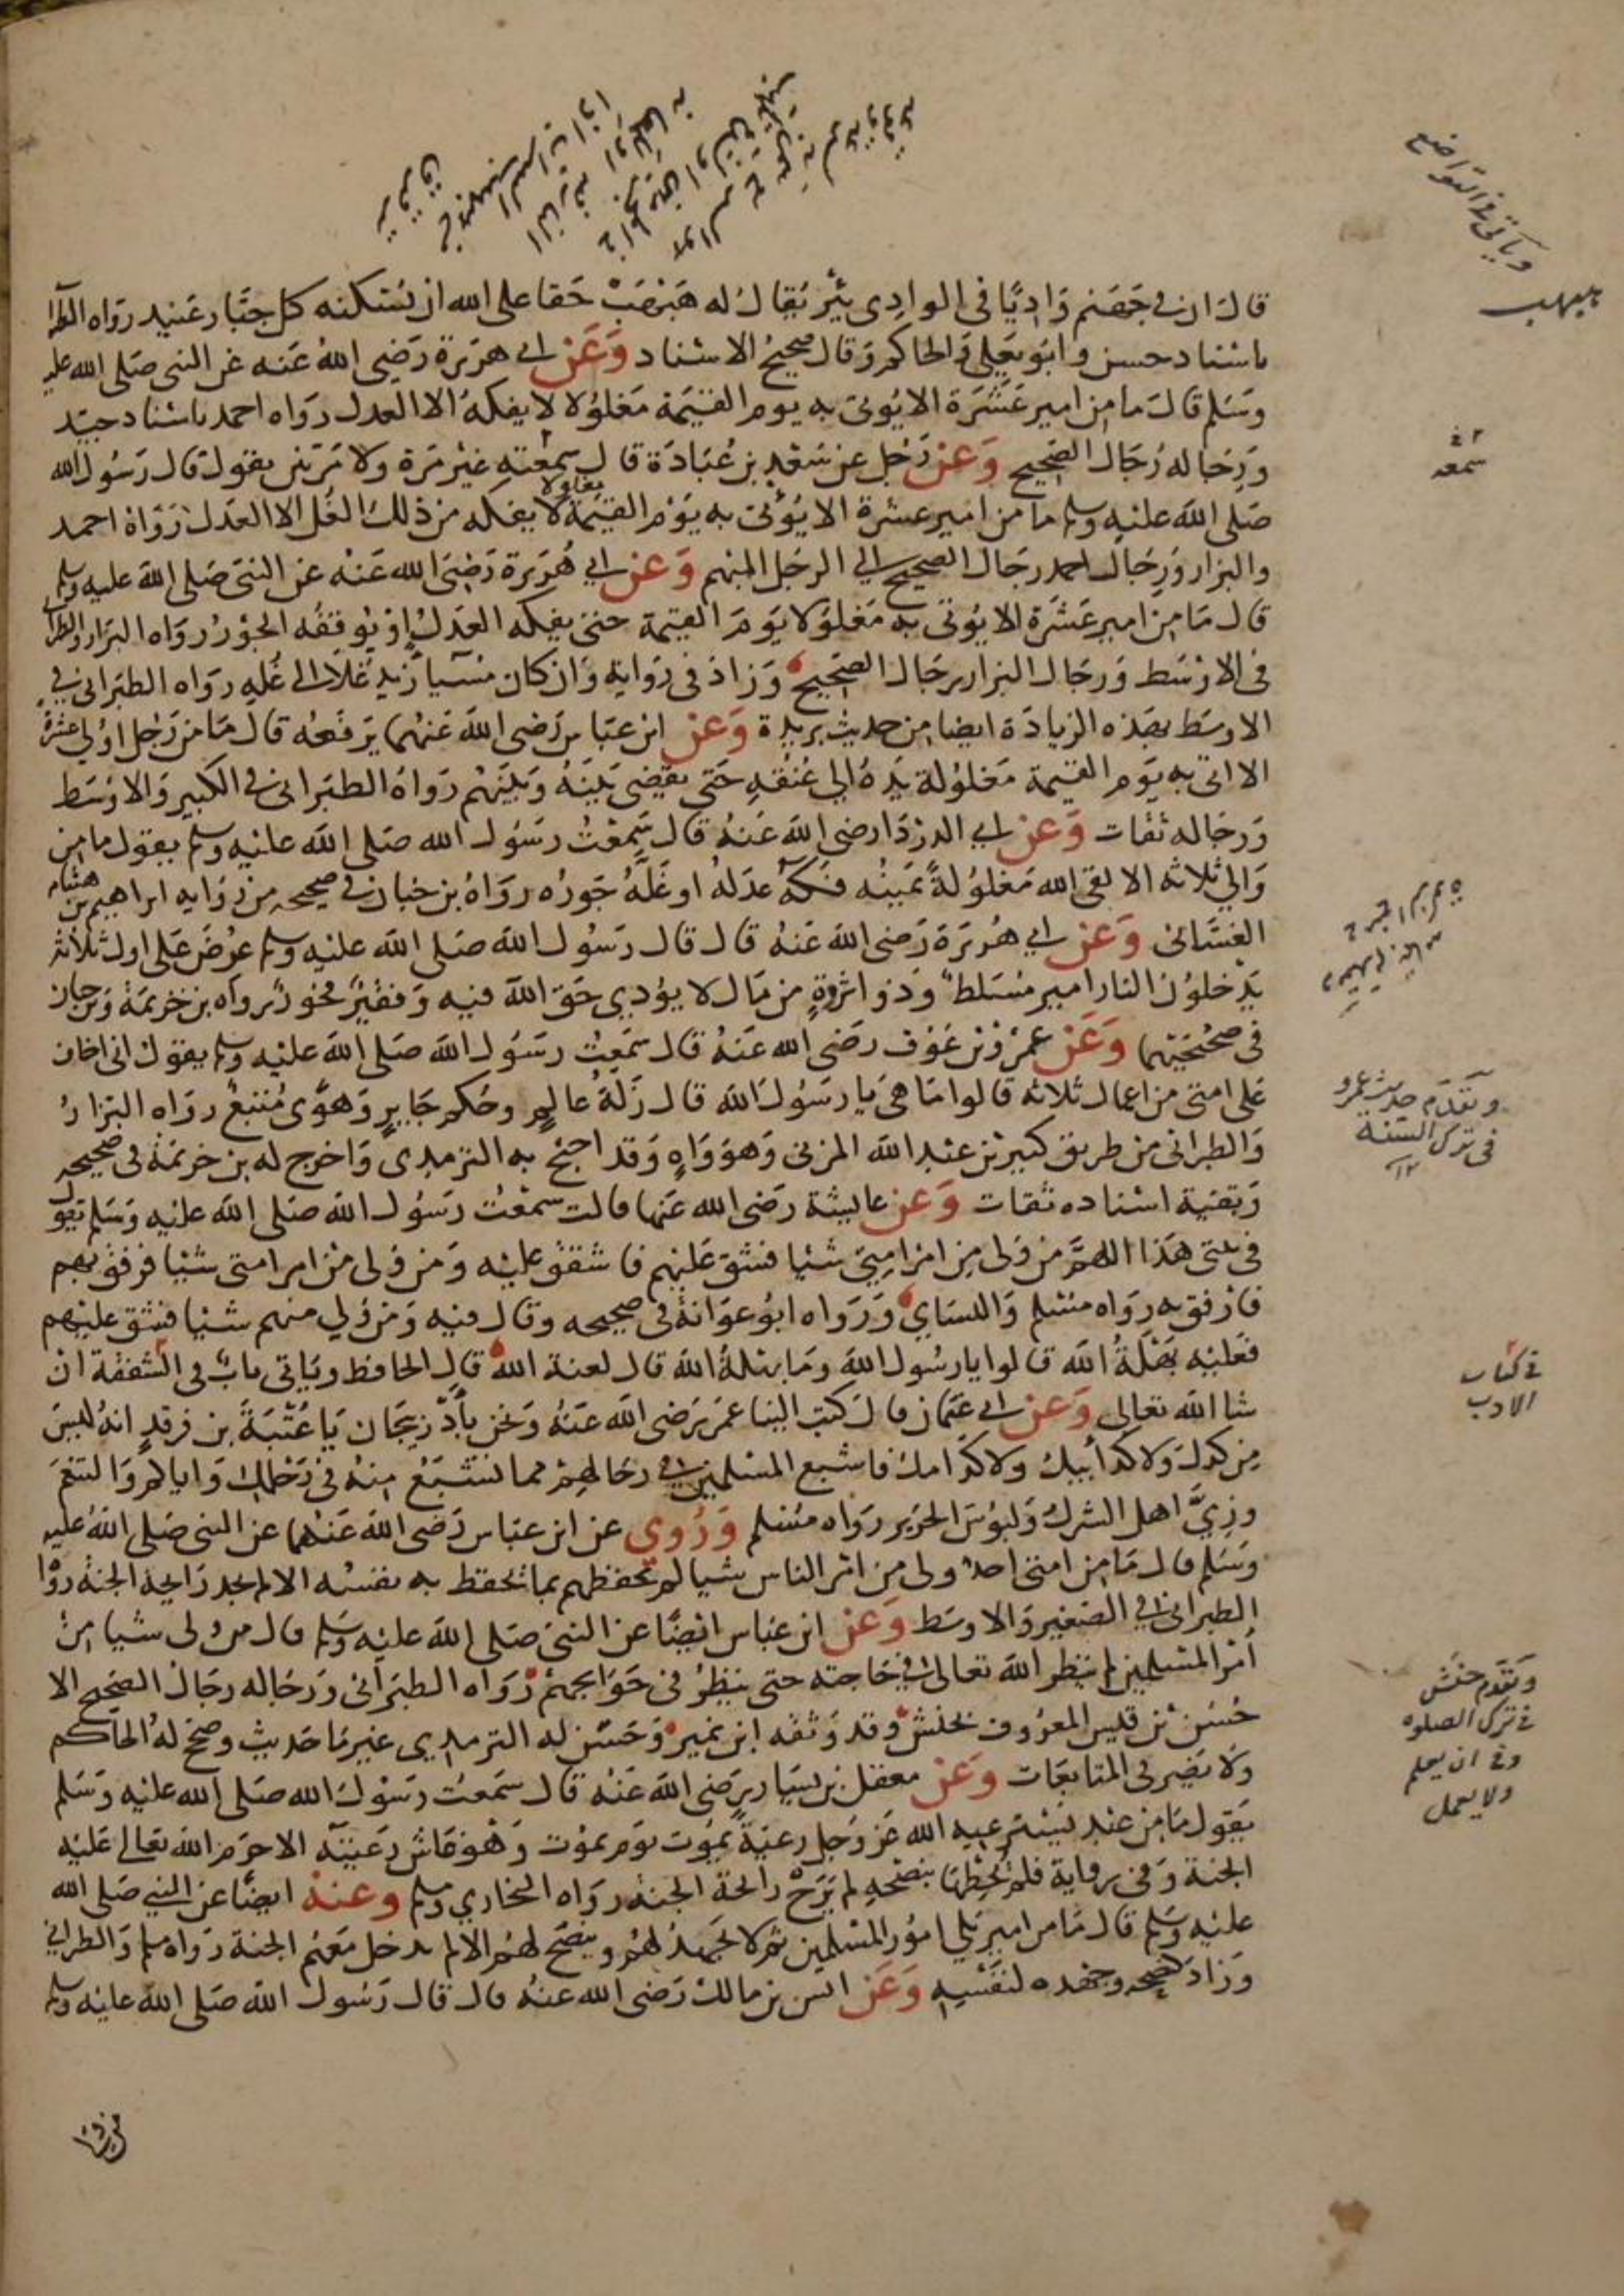 ويأتي في التواضع
هبهب
قال ان في جهنم واديا في الوادي بئر يقال له هبهب حقا على الله ان يسكنه كل جبار عنيد رواه الطبرا
باسناد حسن وابو يعلى والحاكم وقال صحيح الاسناد وعن ابي هريرة رضي الله عنه عن النبي صلى الله عليه
وسلم قال ما من امير عشرة الا يوتى به يوم القيمة مغلولا لا يفكه الا العدل رواه احمد باسناد جيد
ورجاله رجال الصحيح وعن رجل عن سعد بن عبادة قال سمعته غير مرة ولا مرتين يقول قال رسول الله
صلى الله عليه وسلم ما من امير عشرة الا يؤتى به يوم القيمة مغلولا لا يفكه من ذلك الغل الا العدل رواه احمد
والبزار ورجال احمد رجال الصحيح الى الرجل المبهم وعن ابي هريرة رضي الله عنه عن النبي صلى الله عليه وسلم
قال ما من امير عشرة الا يوتى به مغلولا يوم القيمة حتى يفكه العدل او يوقفه الجور رواه البزار والطبرا
في الاوسط ورجال البزار رجال الصحيح وزاد في رواية وان كان مسيا زيد غلا الى غله رواه الطبراني في
الاوسط بهذه الزيادة ايضا من حديث بريدة وعن ابن عباس رضي الله عنهما يرفعه قال ما من رجل اولي عشرة
الا اتى به يوم القيمة مغلولة يده الى عنقه حتى يقضى بينه وبينهم رواه الطبراني في الكبير والاوسط
ورجاله ثقات وعن ابي الدردا رضي الله عنه قال سمعت رسول الله صلى الله عليه وسلم يقول ما من
والي ثلاثه الا لقى الله مغلولة يمينه فكه عدله او غله جوره رواه بن حبان في صحيحه من رواية ابراهيم بن هشام
الغساني وعن ابي هريرة رضي الله عنه قال قال رسول الله صلى الله عليه وسلم عرض على اول ثلاثة
يدخلون النار امير مسلط وذو اثروة من مال لا يؤدي حق الله فيه وفقير فخور رواه بن خزيمة وبن حبان
في صحيحيهما وعن عمرو بن عوف رضي الله عنه قال سمعت رسول الله صلى الله عليه وسلم يقول اني اخاف
على امتي من اعمال ثلاثه قالوا ما هي يا رسول الله قال زلة عالم وحكم جاير وهوى متبع رواه البزار
والطبراني من طريق كثير بن عبد الله المزني وهو واه وقد احتج به الترمدي واخرج له بن خزيمة في صحيحه
وبقية اسناده ثقات وعن عايشة رضي الله عنها قالت سمعت رسول الله صلى الله عليه وسلم يقول
في بيتي هذا اللهم من ولى من امر امتي شيا فشق عليهم فاشقق عليه ومن ولى من امر امتي شيا فرفق بهم
فارفق به رواه مسلم والنساي ورواه ابو عوانة في صحيحه وقال فيه ومن ولي منهم شيا فشق عليهم
فعليه بهلة الله قالوا يا رسول الله وما بهلة الله قال لعنة الله قال الحافظ ويأتي باب في الشفقة ان
شا الله تعالى وعن ابي عثمان قال كتب الينا عمر رضي الله عنه ونحن بأذربيجان يا عتبة بن فرقد انه ليس
من كدك ولا كد ابيك ولا كد امك فاشبع المسلمين في رحالهم مما تشبع منه في رحلك واياكم والتنعم
وزي اهل الشرك ولبوس الحرير رواه مسلم وروي عن ابن عباس رضي الله عنهما عن النبي صلى الله عليه
وسلم قال ما من امتي احد ولى من امر الناس شيا لم يحفظهم بما يحفظ به نفسه الا لم يجد رايحة الجنة رواه
الطبراني في الصغير والاوسط وعن ابن عباس ايضا عن النبي صلى الله عليه وسلم قال من ولى شيا من
امر المسلمين لم ينظر الله تعالى في حاجته حتى ينظر في حوايجهم رواه الطبراني ورجاله رجال الصحيح الا
حسين بن قيس المعروف بحنش وقد وثقه ابن نمير وحسن له الترمدي غير ما حديث وصحح له الحاكم
ولا يضير في المتابعات وعن معقل بن يسار رضي الله عنه قال سمعت رسول الله صلى الله عليه وسلم
يقول ما من عبد يسترعيه الله عز وجل رعية يموت يوم يموت وهو غاش رعيته الا حرم الله تعالى عليه
الجنة وفي رواية فلم يحطها بنصحه لم يرح رائحة الجنة رواه البخاري ومسلم وعنه ايضا عن النبي صلى الله
عليه وسلم قال ما من امير يلي امور المسلمين ثم لا يجهد لهم وينصح لهم الا لم يدخل معهم الجنة رواه مسلم والطبراني
وزاد كنصحه وجهده لنفسه وعن انس بن مالك رضي الله عنه قال قال رسول الله صلى الله عليه وسلم
سمعه
وتقدم حديث عمرو
في ترك السنة
١٢
في كتاب
الادب
وتقدم حنش
في ترك الصلوه
وفي ان يعلم
ولا يعمل